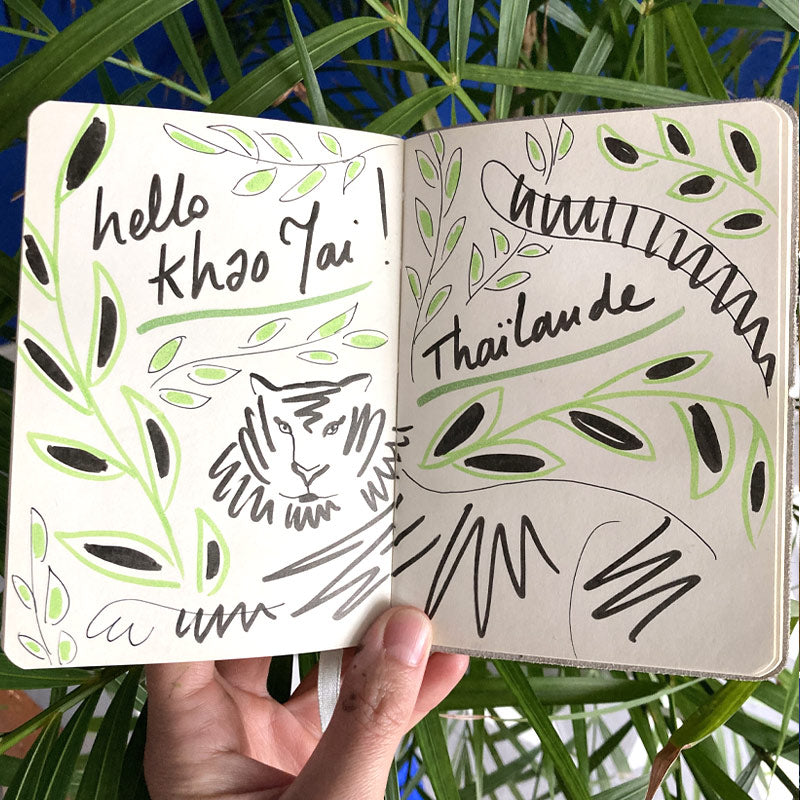 hello
Khao Yai !
Thaïlande